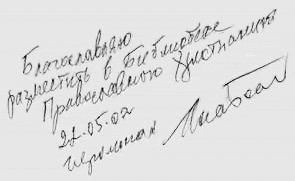 Благословляю
разместить в Библиотеке
Православного Христианина
22.05.02
иеромонах